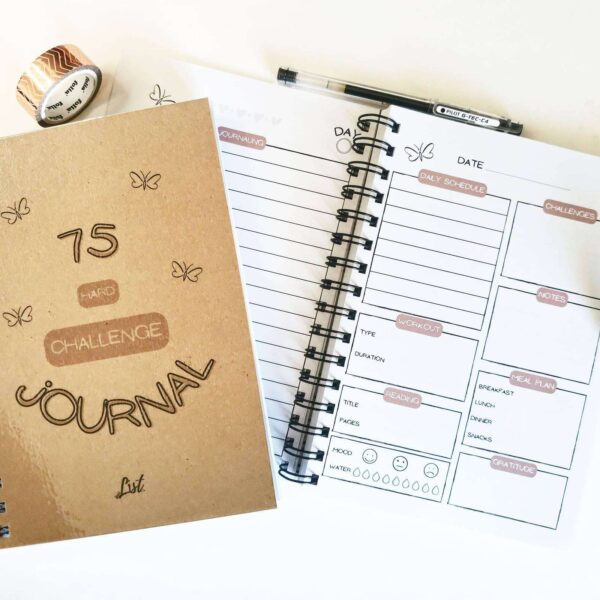 folia
folia
75
HARD
CHALLENGE
JOURNAL
List
JOURNALING
DAY
PILOT G-TEC-C4
DATE
DAILY SCHEDULE
CHALLENGES
NOTES
WORKOUT
TYPE
DURATION
READING
TITLE
PAGES
MOOD
WATER
MEAL PLAN
BREAKFAST
LUNCH
DINNER
SNACKS
GRATITUDE